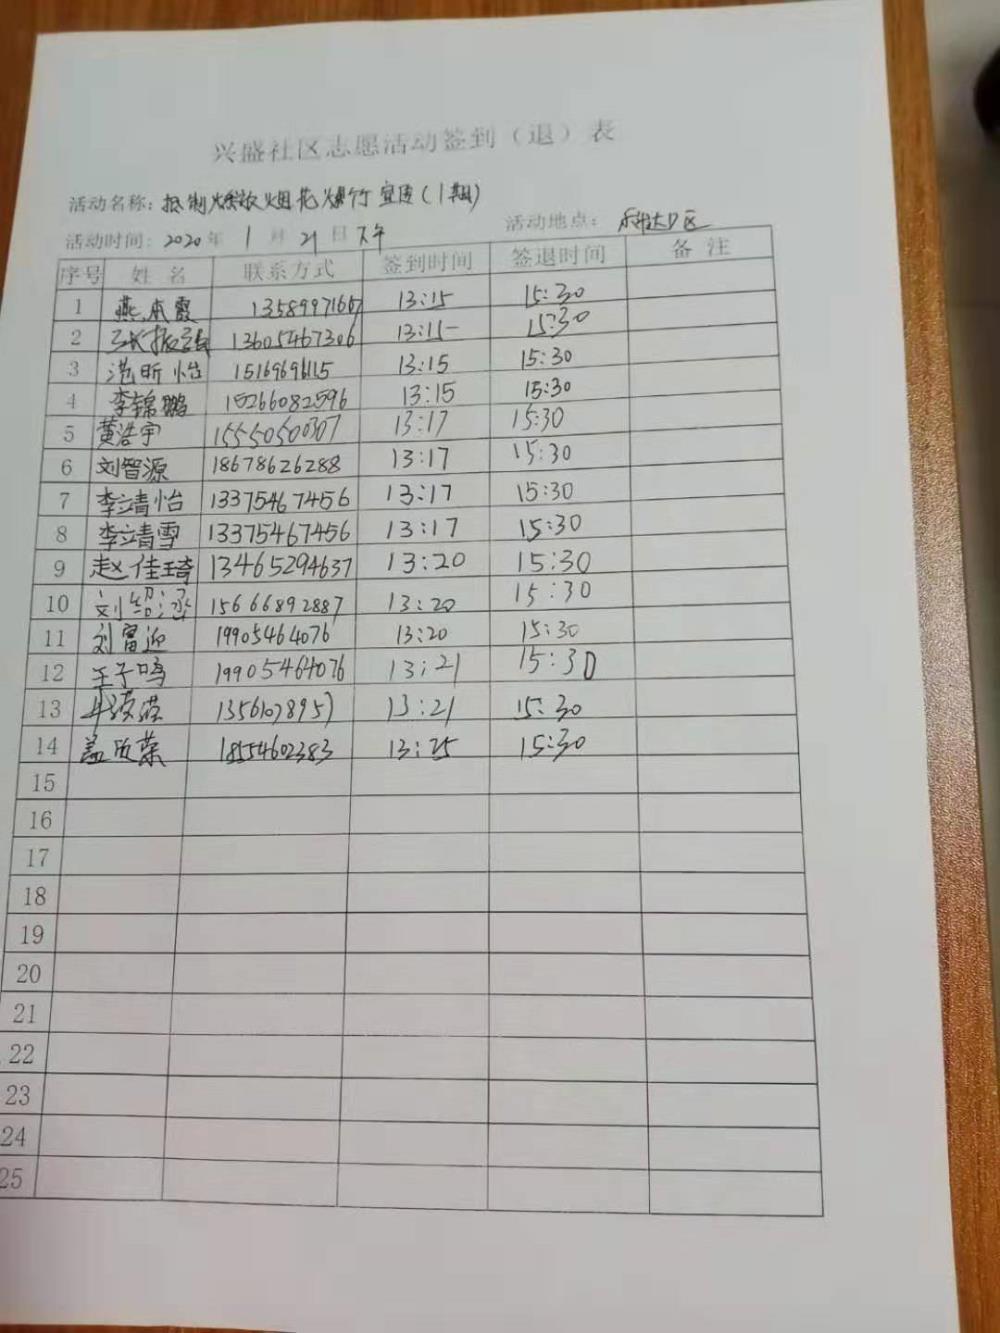 兴盛社区志愿活动签到（退）表
活动名称：抵制燃放烟花爆竹宣传（1期）
活动时间：2020年 1 月 21 日下午 活动地点： 区
序号 姓名 联系方式 签到时间 签退时间 备注
1 燕本霞 13589971667 13:15 15:30
2 张振 13605467306 13:15 15:30
3 范昕怡 15169696115 13:15 15:30
4 李锦鹏 15266082596 13:15 15:30
5 黄浩宇 15550500307 13:17 15:30
6 刘智源 18678626288 13:17 15:30
7 李靖怡 13375467456 13:17 15:30
8 李靖雪 13375467456 13:17 15:30
9 赵佳琦 13465294637 13:20 15:30
10 刘绍丞 15666892887 13:20 15:30
11 刘富迎 19905464076 13:20 15:30
12 王子鸣 19905464076 13:21 15:30
13 13561078957 13:21 15:30
14 盖欣荣 18554602383 13:25 15:30
15
16
17
18
19
20
21
22
23
24
25